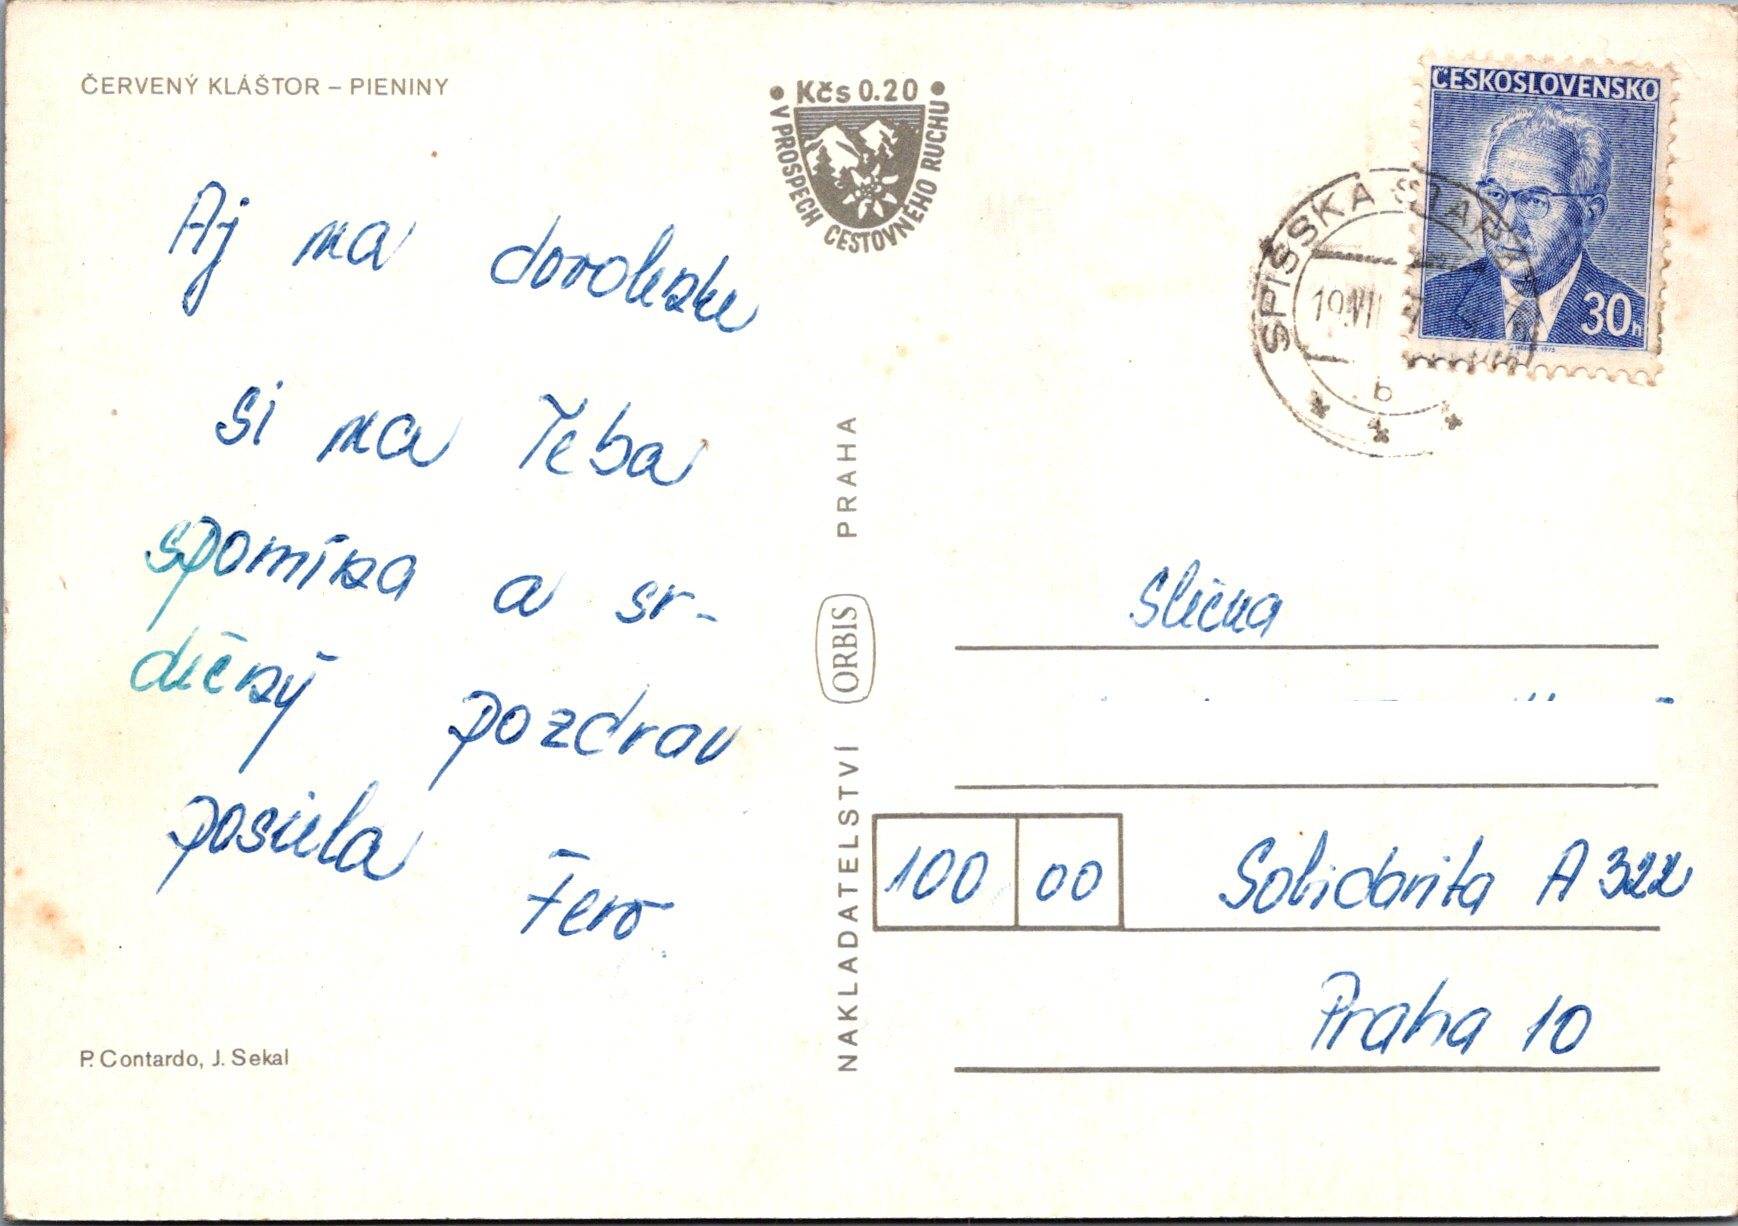 ČERVENÝ KLÁŠTOR – PIENINY
Kčs 0.20
V PROSPECH CESTOVNÉHO RUCHU
ČESKOSLOVENSKO
30h
SPIŠSKÁ STARÁ
19.VII
b
Aj na dovolenke
si na Teba
spomína a sr-
dečný pozdrav
posiela
Fero
P. Contardo, J. Sekal
NAKLADATELSTVÍ ORBIS PRAHA
Slečna
100 00 Solidarita A 322
Praha 10